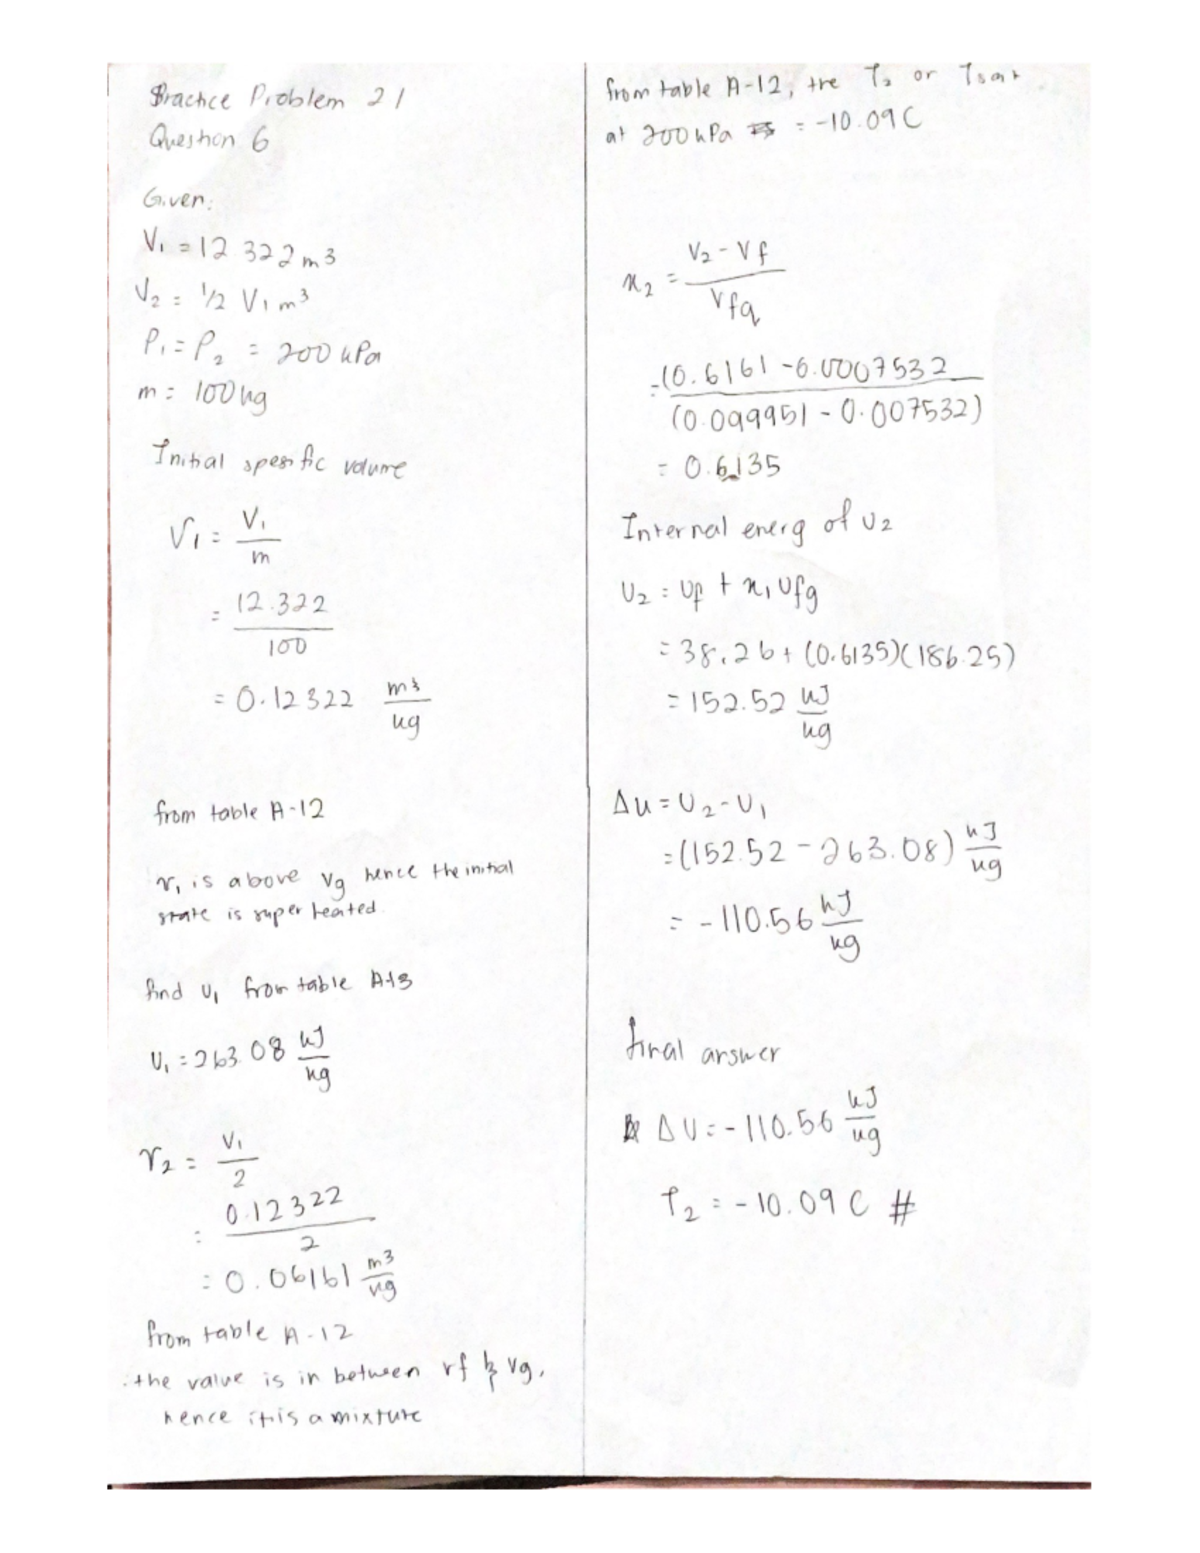 Practice Problem 21
Question 6
Given:
V₁ = 12.322 m³
V₂ = 1/2 V₁ m³
P₁ = P₂ = 200 kPa
m = 100 kg
Initial spesific volume
v₁ = V₁ / m
= 12.322 / 100
= 0.12322 m³/kg
from table A-12
v₁ is above vg hence the initial
state is super heated
find u₁ from table A-13
u₁ = 263.08 kJ/kg
v₂ = V₁ / 2
= 0.12322 / 2
= 0.06161 m³/kg
from table A-12
the value is in between vf & vg,
hence it is a mixture
from table A-12, the T₂ or Tsat
at 200 kPa = -10.09 C
x₂ = (V₂ - Vf) / Vfg
= (0.6161 - 0.0007532 / (0.099951 - 0.007532)
= 0.6135
Internal energ of U₂
U₂ = Uf + x₁ Ufg
= 38.26 + (0.6135)(186.25)
= 152.52 kJ/kg
Δu = U₂ - U₁
= (152.52 - 263.08) kJ/kg
= -110.56 kJ/kg
final answer
ΔU = -110.56 kJ/kg
T₂ = -10.09 C #